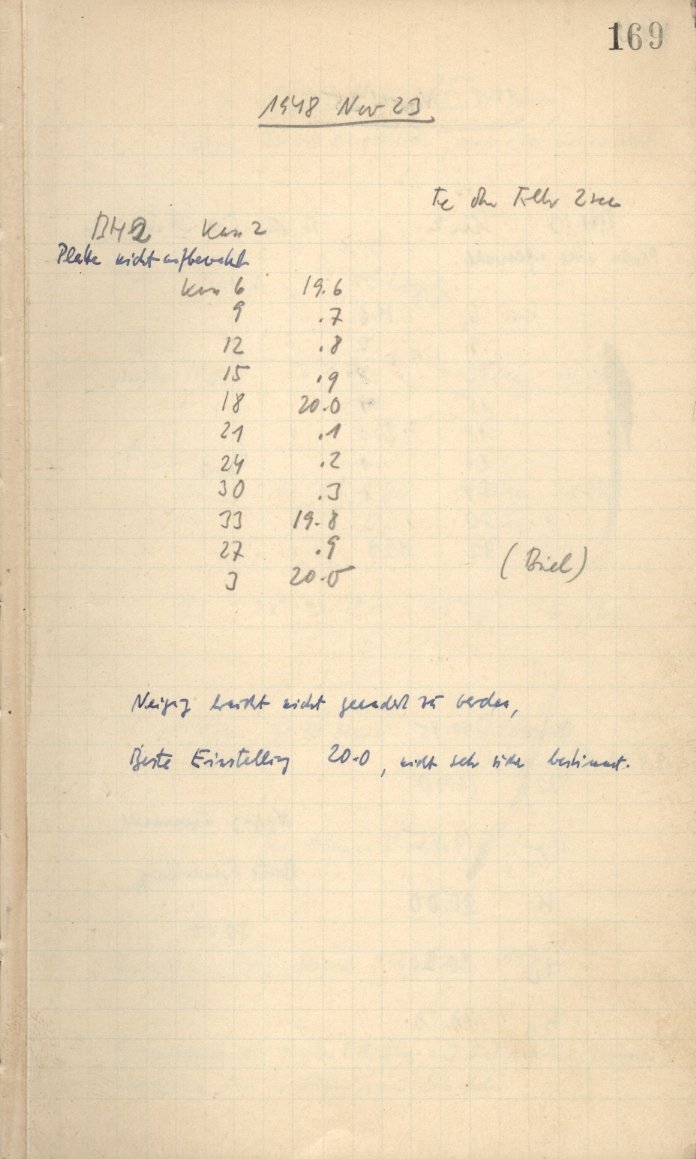 169
1948 Nov 23
Te ohne Filter 2 sec
BH2 Km 2
Platte nicht aufbewahrt
Km 6 19.6
9 .7
12 .8
15 .9
18 20.0
21 .1
24 .2
30 .3
33 19.8
27 .9
3 20.0
(Biel)
Neigung braucht nicht geändert zu werden,
Beste Einstellung 20.0, nicht sehr sicher bestimmt.